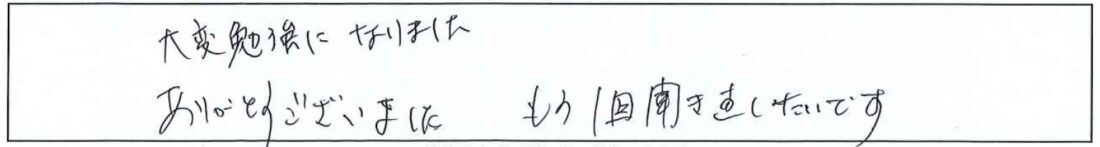 大変勉強になりました
ありがとうございました　もう1回聞き直したいです